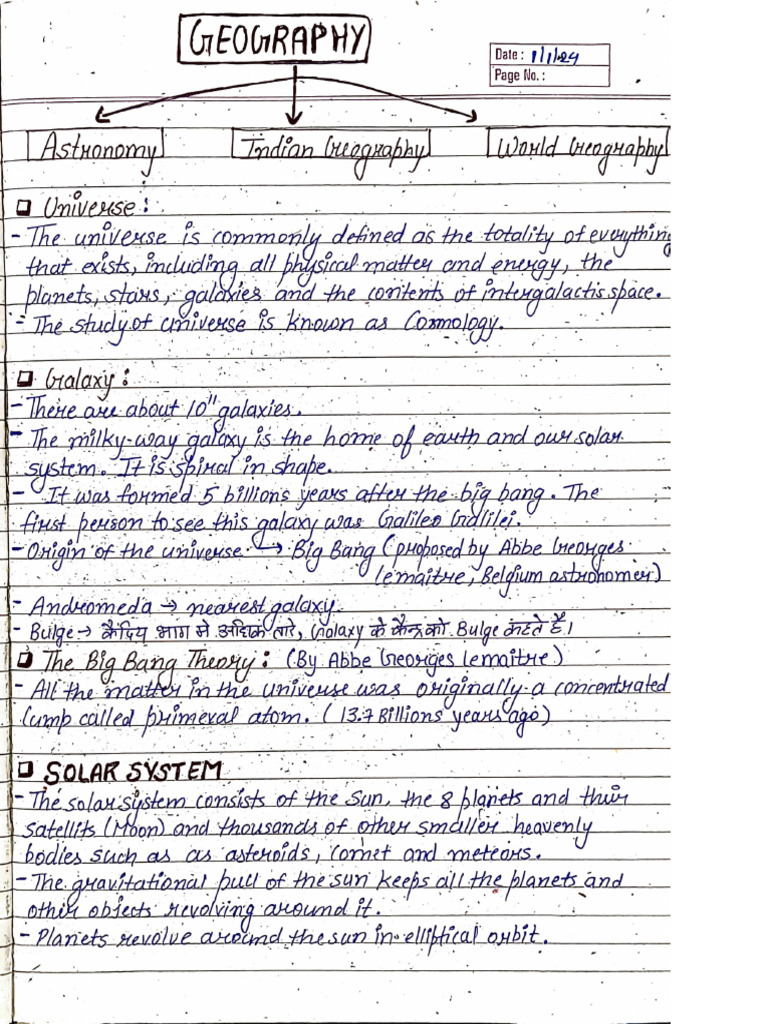 GEOGRAPHY
Date: 1/1/24
Page No.:
Astronomy
Indian Geography
World Geography
Universe:
- The universe is commonly defined as the totality of everything
that exists, including all physical matter and energy, the
planets, stars, galaxies and the contents of intergalactis space.
- The study of universe is known as Cosmology.
Galaxy:
- There are about 10¹¹ galaxies.
- The milky-way galaxy is the home of earth and our solar
system. It is spiral in shape.
- It was formed 5 billions years after the big bang. The
first person to see this galaxy was Galileo Galilei.
- Origin of the universe → Big Bang (proposed by Abbe Georges
lemaitre, Belgium astronomer)
- Andromeda → nearest galaxy.
- Bulge → केंद्रिय भाग में अधिक तारे, Galaxy के केन्द्र को Bulge कहते हैं।
The Big Bang Theory: (By Abbe Georges lemaitre)
- All the matter in the universe was originally a concentrated
lump called primeval atom. (13.7 Billions years ago)
SOLAR SYSTEM
- The solar system consists of the Sun, the 8 planets and their
satellits (Moon) and thousands of other smaller heavenly
bodies such as as asteroids, comet and meteors.
- The gravitational pull of the sun keeps all the planets and
other objects revolving around it.
- Planets revolve around the sun in elliptical orbit.